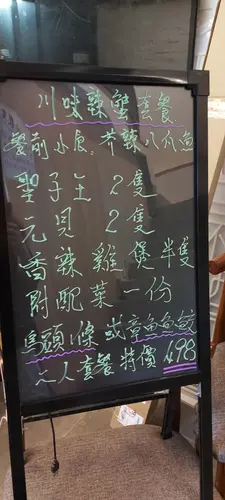 川味辣蟹套餐
餐前小食:芥辣八爪魚
聖子王 2隻
元貝 2隻
香辣雞煲半隻
附配菜一份
馬頭1條或章魚魚餃
二人套餐特價498